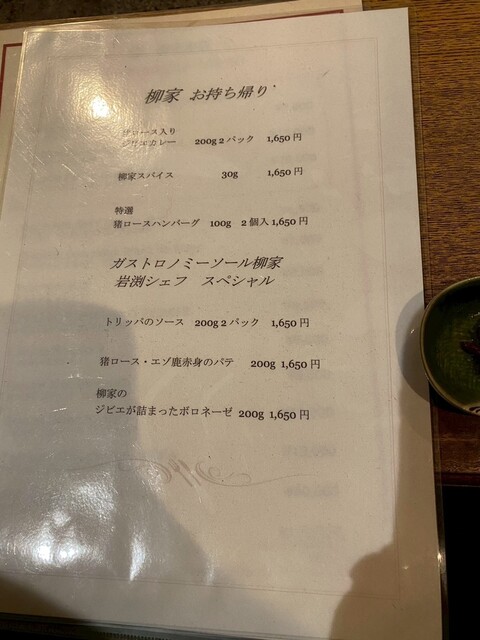 柳家 お持ち帰り
ロース入り
ジビエカレー 200g 2パック 1,650円
柳家スパイス 30g 1,650円
特選
猪ロースハンバーグ 100g 2個入 1,650円
ガストロノミーソール柳家
岩渕シェフ スペシャル
トリッパのソース 200g 2パック 1,650円
猪ロース・エゾ鹿赤身のパテ 200g 1,650円
柳家の
ジビエが詰まったボロネーゼ 200g 1,650円